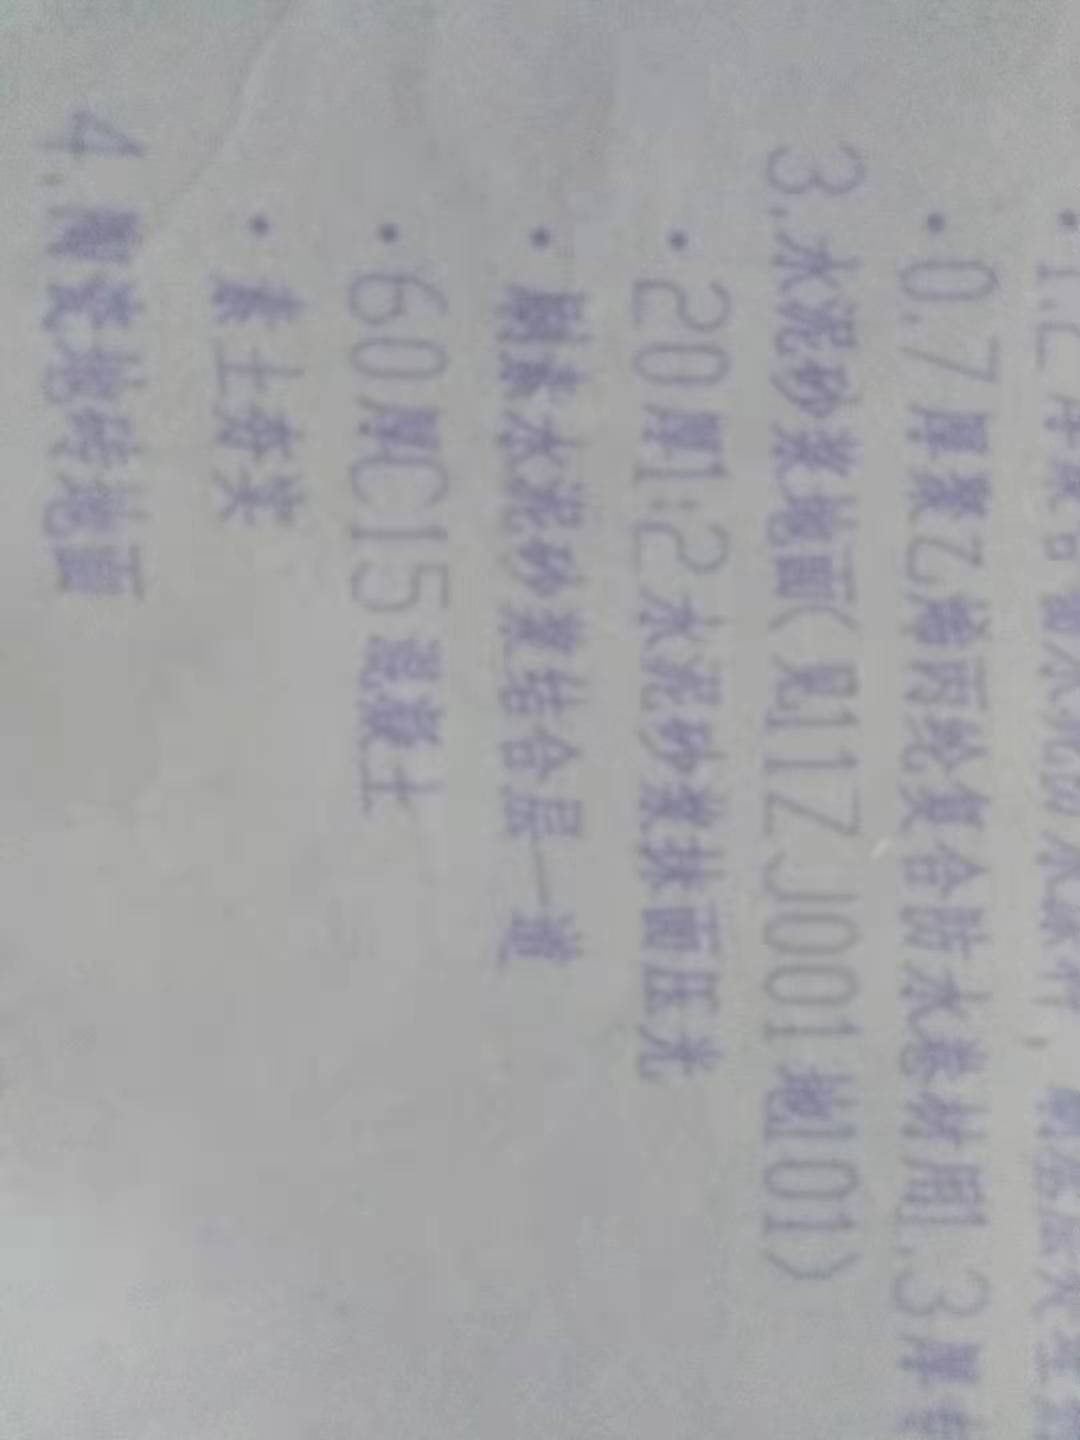 • 0.7厚聚乙烯丙纶复合防水卷材用1.3厚
3.水泥砂浆地面(见11ZJ001 地101)
• 20厚1:2水泥砂浆抹面压光
• 刷素水泥砂浆结合层一道
• 60厚C15混凝土
• 素土夯实
4.陶瓷地砖地面